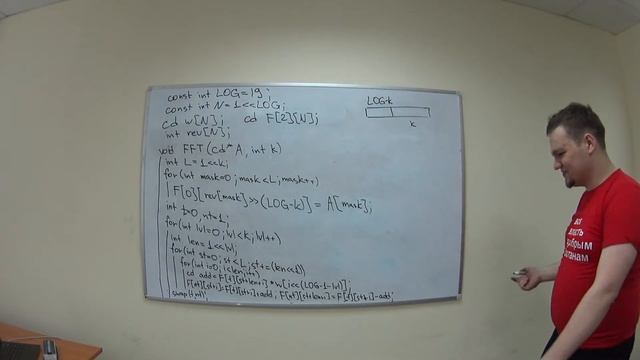 const int LOG=19;
const int N=1<<LOG;
cd w[N]; cd F[2][N];
int rev[N];
LOG-k
k
void FFT(cd* A, int k)
int L=1<<k;
for(int mask=0;mask<L;mask++)
F[0][rev[mask]>>(LOG-k)]=A[mask];
int t=0,nt=1;
for(int lvl=0;lvl<k;lvl++)
int len=1<<lvl;
for(int st=0;st<L;st+=(len<<1))
for(int i=0;i<len;i++)
cd add=F[t][st+len+i]*w[i<<(LOG-1-lvl)];
F[nt][st+i]=F[t][st+i]+add; F[nt][st+len+i]=F[t][st+i]-add;
swap(t,nt);
все
власть
добрым